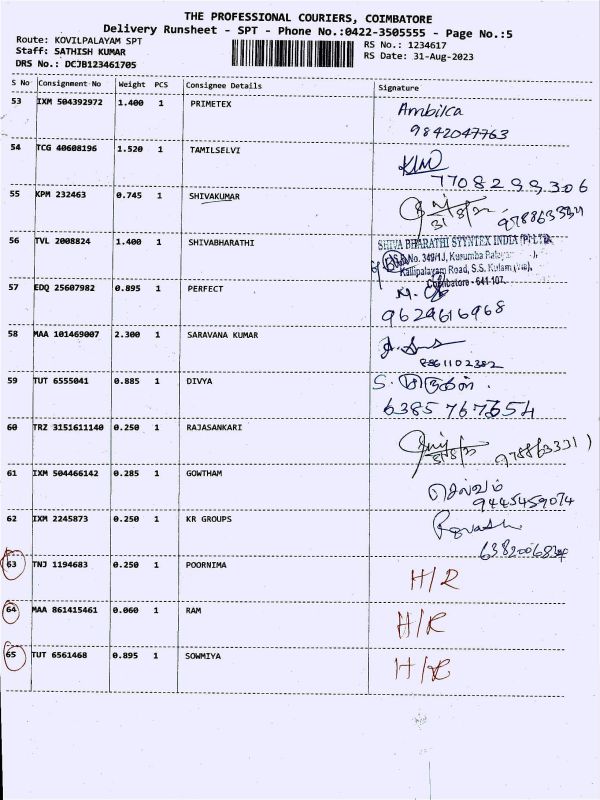 THE PROFESSIONAL COURIERS, COIMBATORE
Delivery Runsheet - SPT - Phone No.:0422-3505555 - Page No.:5
Route: KOVILPALAYAM SPT
RS No.: 1234617
Staff: SATHISH KUMAR
RS Date: 31-Aug-2023
DRS No.: DCJB123461705
S No Consignment No Weight PCS Consignee Details Signature
53 IXM 504392972 1.400 1 PRIMETEX Ambika
9842047763
54 TCG 40608196 1.520 1 TAMILSELVI
7708299306
55 KPM 232463 0.745 1 SHIVAKUMAR
31/8/23
56 TVL 2008824 1.400 1 SHIVABHARATHI SHIVA BHARATHI SYYNTEX INDIA (P) LTD
No. 349/1J, Kurumba Palayam
Kallipalayam Road, S.S. Kulam (Via),
Coimbatore - 641 107.
57 EDQ 25607982 0.895 1 PERFECT
9629616968
58 MAA 101469007 2.300 1 SARAVANA KUMAR
8861102382
59 TUT 6555041 0.885 1 DIVYA S. முருகன்.
6385767654
60 TRZ 3151611140 0.250 1 RAJASANKARI
31/8/23
61 IXM 504466142 0.285 1 GOWTHAM செல்வம்
9445459074
62 IXM 2245873 0.250 1 KR GROUPS
63 TNJ 1194683 0.250 1 POORNIMA H/R
64 MAA 861415461 0.060 1 RAM H/R
65 TUT 6561468 0.895 1 SOWMIYA H/R